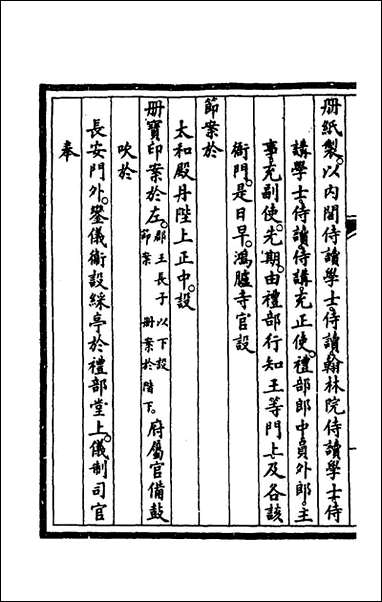 册紙製。以内閣侍讀學士、侍讀、翰林院侍讀學士、侍
講學士、侍讀、侍講、充正使。禮部郎中、員外郎、主
事、充副使。先期。由禮部行知王等門上、及各該
衙門。是日早。鴻臚寺官設
節案於
太和殿丹陛上正中。設
册寶印案於左。郡王長子以下設
節案册案於階下。府屬官備鼓
吹於
長安門外。鑾儀衛設綵亭於禮部堂上。儀制司官
奉